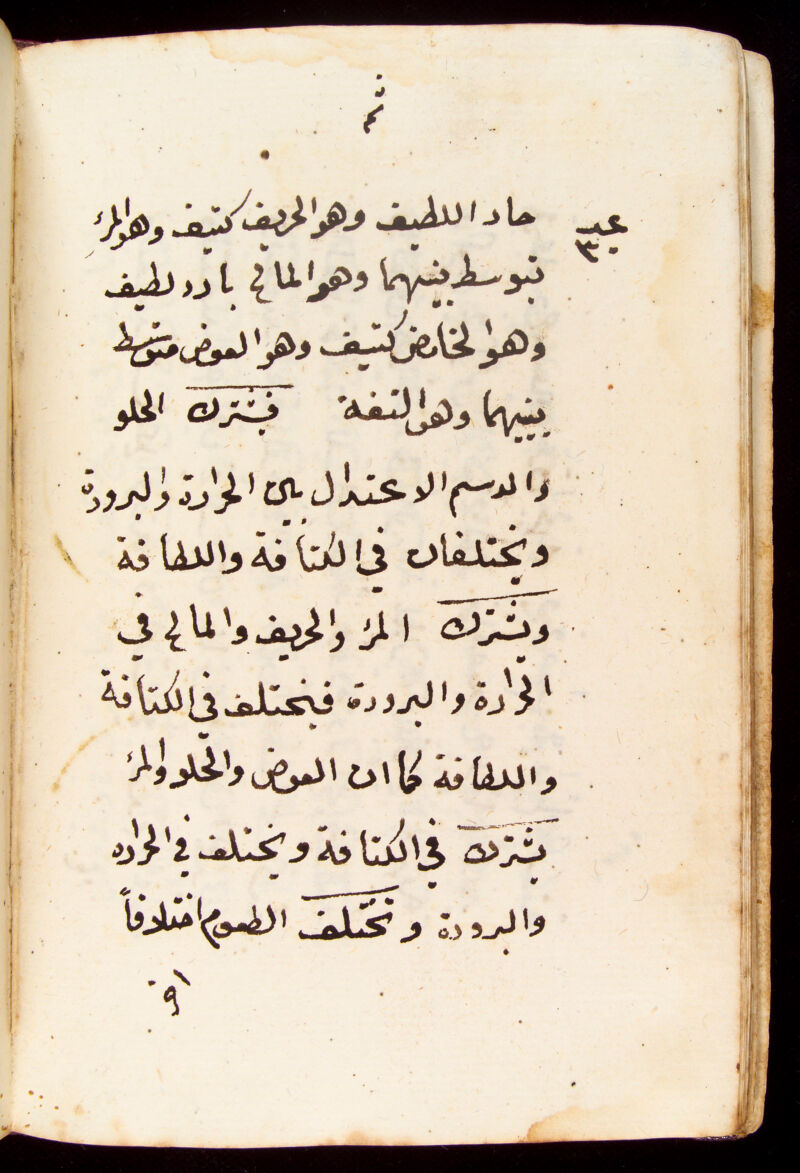 ثم
حاد اللطيف وهو الحريف كثيف وهو المر
يتوسط بينهما وهو المالح بارد لطيف
وهو الحامض كثيف وهو العوض متوسط
بينهما وهو التفة فيشترك الحلو
والدسم الاعتدال بين الحرارة والبرودة
ويختلفان في الكثافة واللطافة
ويشترك المر والحريف والمالح في
الحرارة والبرودة فيختلف في الكثافة
واللطافة كما ان العوض والحلو والمر
يشترك في الكثافة ويختلف في الحراره
والبرودة وتختلف الطعوم اختلافاً